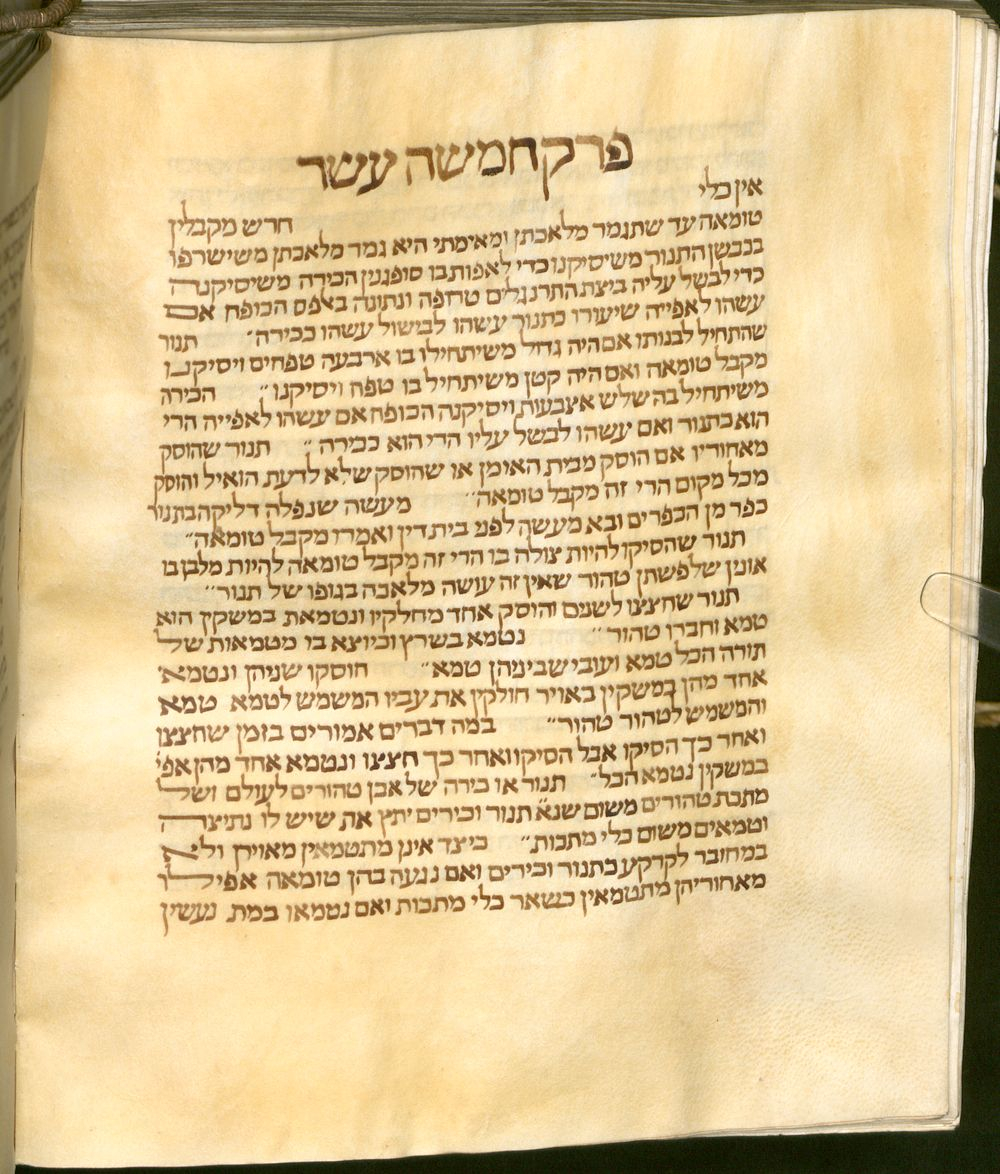 פרק חמשה עשר
אין כלי
חרש מקבלין
טומאה עד שתגמר מלאכתן ומאימתי היא גמר מלאכתן משישרפו
בכבשן התנור משיסיקנו כדי לאפות בו סופגנין הכירה משיסיקנה
כדי לבשל עליה ביצת התרנגלים טרופה ונתונה באלפס הכופח אם
עשהו לאפייה שיעורו כתנור עשהו לבישול עשהו ככירה׳ תנור
שהתחיל לבנותו אם היה גדול משיתחילו בו ארבעה טפחים ויסיקנו
מקבל טומאה ואם היה קטן משיתחיל בו טפח ויסיקנו״ הכירה
משיתחיל בה שלש אצבעות ויסיקנה הכופח אם עשהו לאפייה הרי
הוא כתנור ואם עשהו לבשל עליו הרי הוא ככירה״ תנור שהוסק
מאחוריו אם הוסק מבית האומן או שהוסק שלא לדעת הואיל והוסק
מכל מקום הרי זה מקבל טומאה״ מעשה שנפלה דליקה בתנור
כפר מן הכפרים ובא מעשה לפני בית דין ואמרו מקבל טומאה״
תנור שהסיקו להיות צולה בו הרי זה מקבל טומאה להיות מלבן בו
אונין של פשתן טהור שאין זה עושה מלאכה בגופו של תנור״
תנור שחצצו לשנים והוסק אחד מחלקיו ונטמאת במשקין הוא
טמא וחברו טהור״ נטמא בשרץ וכיוצא בו מטמאות של
תורה הכל טמא ועובי שביניהן טמא״ הוסקו שניהן ונטמא
אחד מהן במשקין באויר חולקין את עביו המשמש לטמא טמא
והמשמש לטהור טהור״ במה דברים אמורים בזמן שחצצו
ואחר כך הסיקו אבל הסיקו ואחר כך חצצו ונטמא אחד מהן אפי׳
במשקין נטמא הכל״ תנור או כירה של אבן טהורים לעולם ושל
מתכת טהורים משום שנא׳ תנור וכירים יתץ את שיש לו נתיצה
וטמאים משום כלי מתכות״ כיצד אינן מתטמאין מאוירן ולא
במחובר לקרקע כתנור וכירים ואם נגעה בהן טומאה אפילו
מאחוריהן מתטמאין כשאר כלי מתכות ואם נטמאו במת נעשין